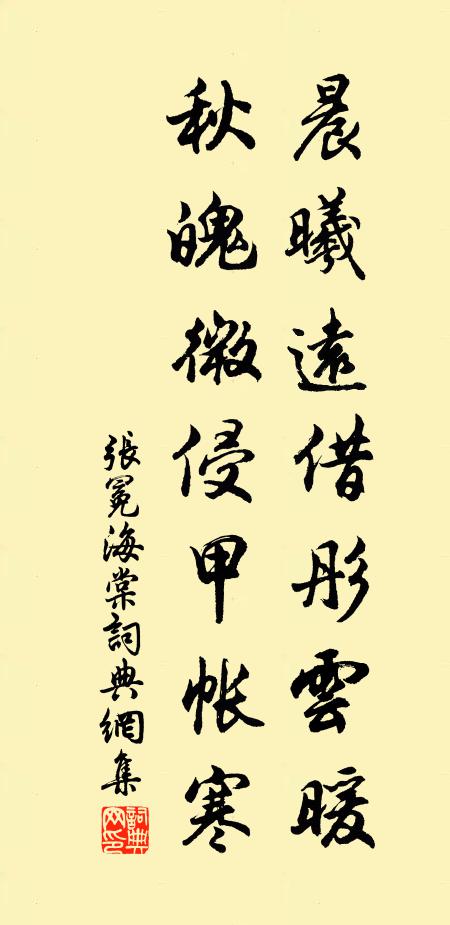 晨曦遠借彤雲暖
秋魄微侵甲帳寒
張冕海棠詞典網集
詞典网印